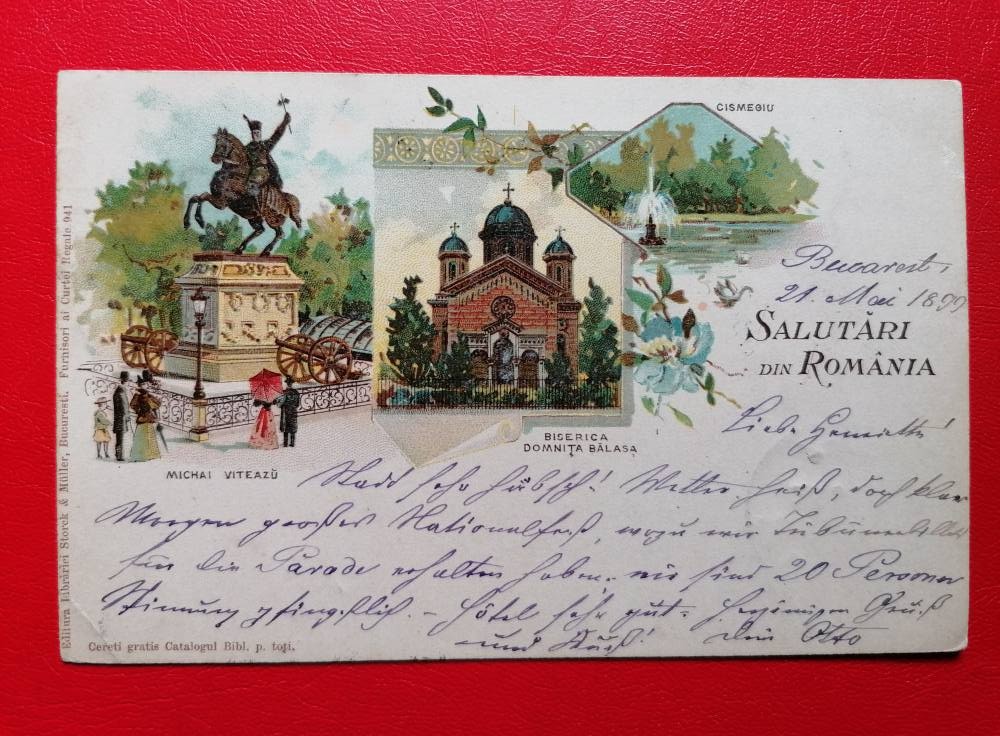 CISMEGIU
Bucarest,
21. Mai 1899
SALUTĂRI
DIN ROMÂNIA
Liebe Henriette!
BISERICA
DOMNIȚA BĂLAȘA
MICHAI VITEAZŬ
Stadt sehr hübsch! Wetter heiß, doch klar
Morgen großes Nationalfest, wozu wir Tribünenbillets
für die Parade erhalten haben. wir sind 20 Personen
Stimmung pfingstlich. - Hôtel sehr gut - Gruß
und Kuß! Dein Otto
Cereti gratis Catalogul Bibl. p. toți.
Editura Librăriei Storck & Müller, Bucuresti. Furnisori ai Curtei Regale. 941